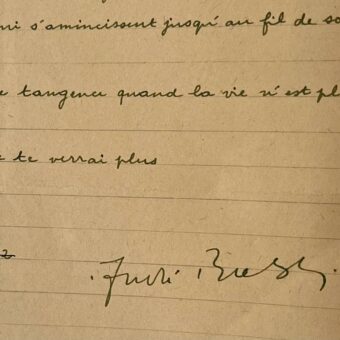 ui s'amincissent jusqu'au fil de so
e tangence quand la vie n'est pl
e te verrai plus
André Breton.